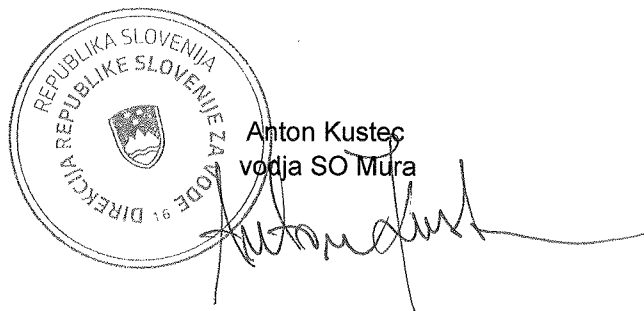 REPUBLIKA SLOVENIJA
DIREKCIJA REPUBLIKE SLOVENIJE ZA VODE
16
Anton Kustec
vodja SO Mura